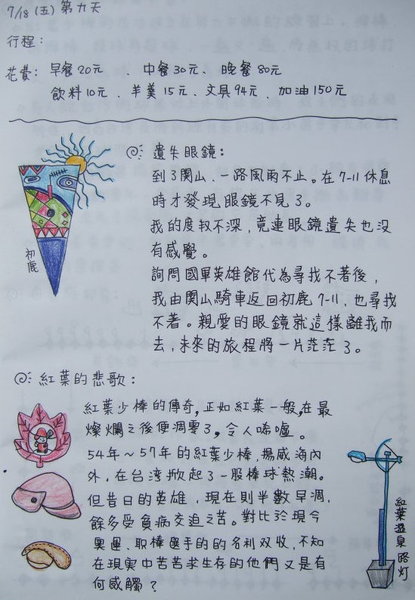 7/18 (五) 第九天
行程：
花費：早餐20元 、 中餐30元 、 晚餐80元
飲料10元 、 羊羹15元 、 文具94元 、 加油150元
遺失眼鏡：
到了関山、一路風雨不止。在7-11休息
時才發現眼鏡不見了。
我的度数不深，竟連眼鏡遺失也沒
有感覺。
詢問國軍英雄館代為尋找不著後，
我由関山騎車返回初鹿7-11，也尋找
不著。親愛的眼鏡就這樣離我而
去，未來的旅程將一片茫茫了。
初鹿
紅葉的悲歌：
紅葉少棒的傳奇，正如紅葉一般，在最
燦爛之後便凋零了，令人唏噓。
54年～57年的紅葉少棒，揚威海內
外，在台灣掀起了一股棒球熱潮。
但昔日的英雄，現在則半數早凋，
餘多受貧病交迫之苦。對比於現今
奧運、职棒選手的的名利双收，不知
在現實中苦苦求生存的他們又是有
何感觸？
紅葉溫泉路灯